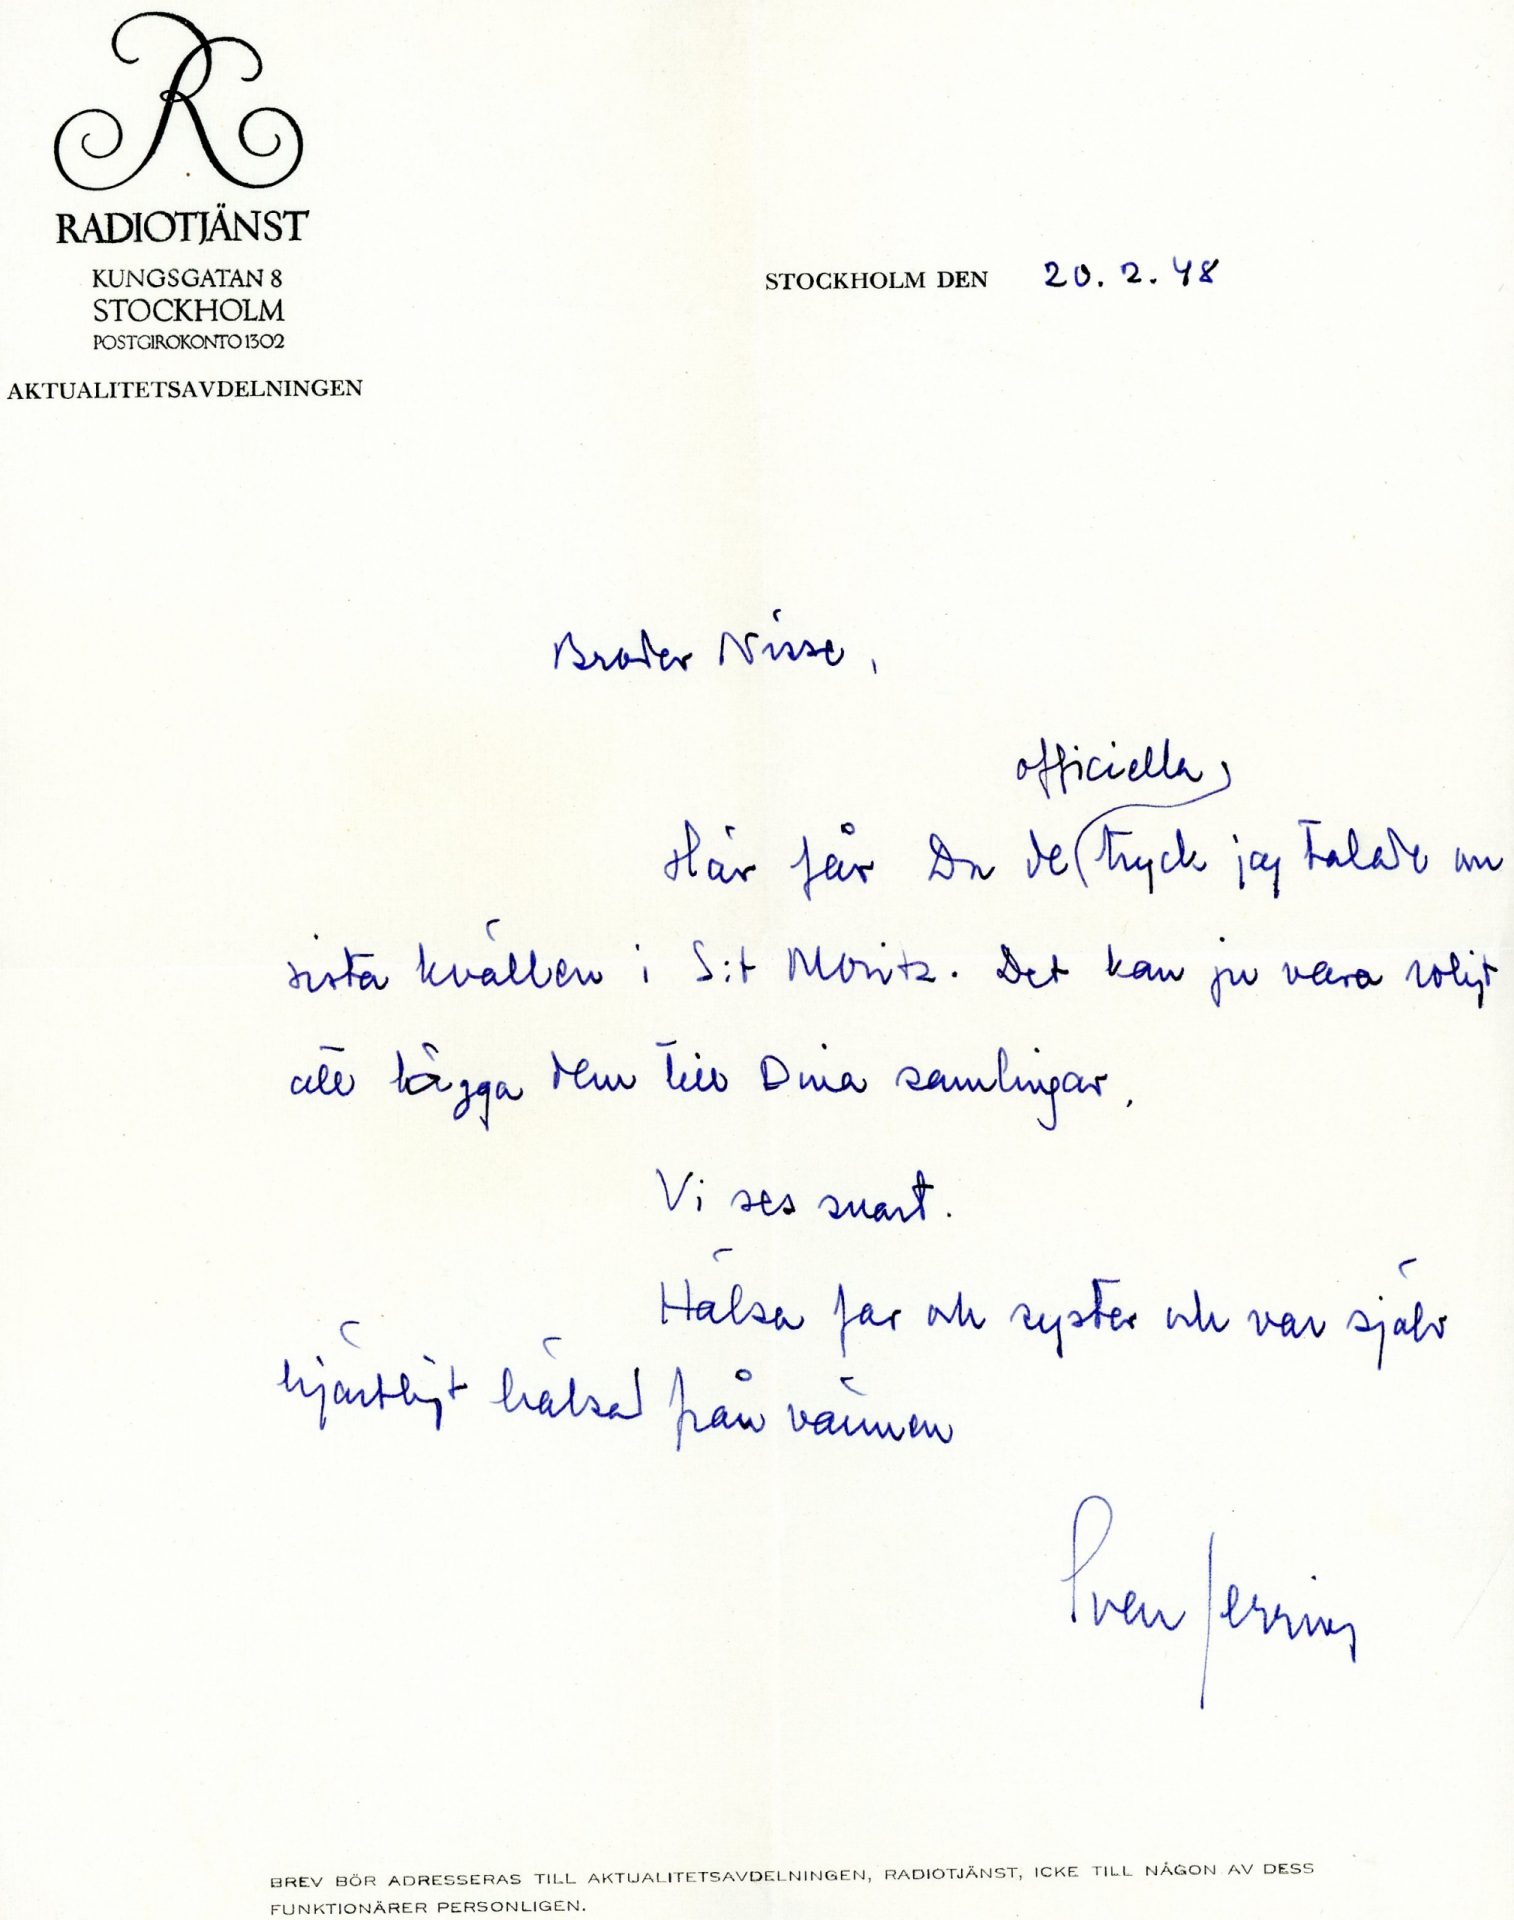 R
RADIOTJÄNST
KUNGSGATAN 8
STOCKHOLM
POSTGIROKONTO 1302
AKTUALITETSAVDELNINGEN
STOCKHOLM DEN 20. 2. 48
Broder Nisse,
officiella
Här får Du de tryck jag talade om
sista kvällen i S:t Moritz. Det kan ju vara roligt
att lägga dem till Dina samlingar.
Vi ses snart.
Hälsa far och syster och var själv
hjärtligt hälsad från vännen
Sven Jerring
BREV BÖR ADRESSERAS TILL AKTUALITETSAVDELNINGEN, RADIOTJÄNST, ICKE TILL NÅGON AV DESS
FUNKTIONÄRER PERSONLIGEN.